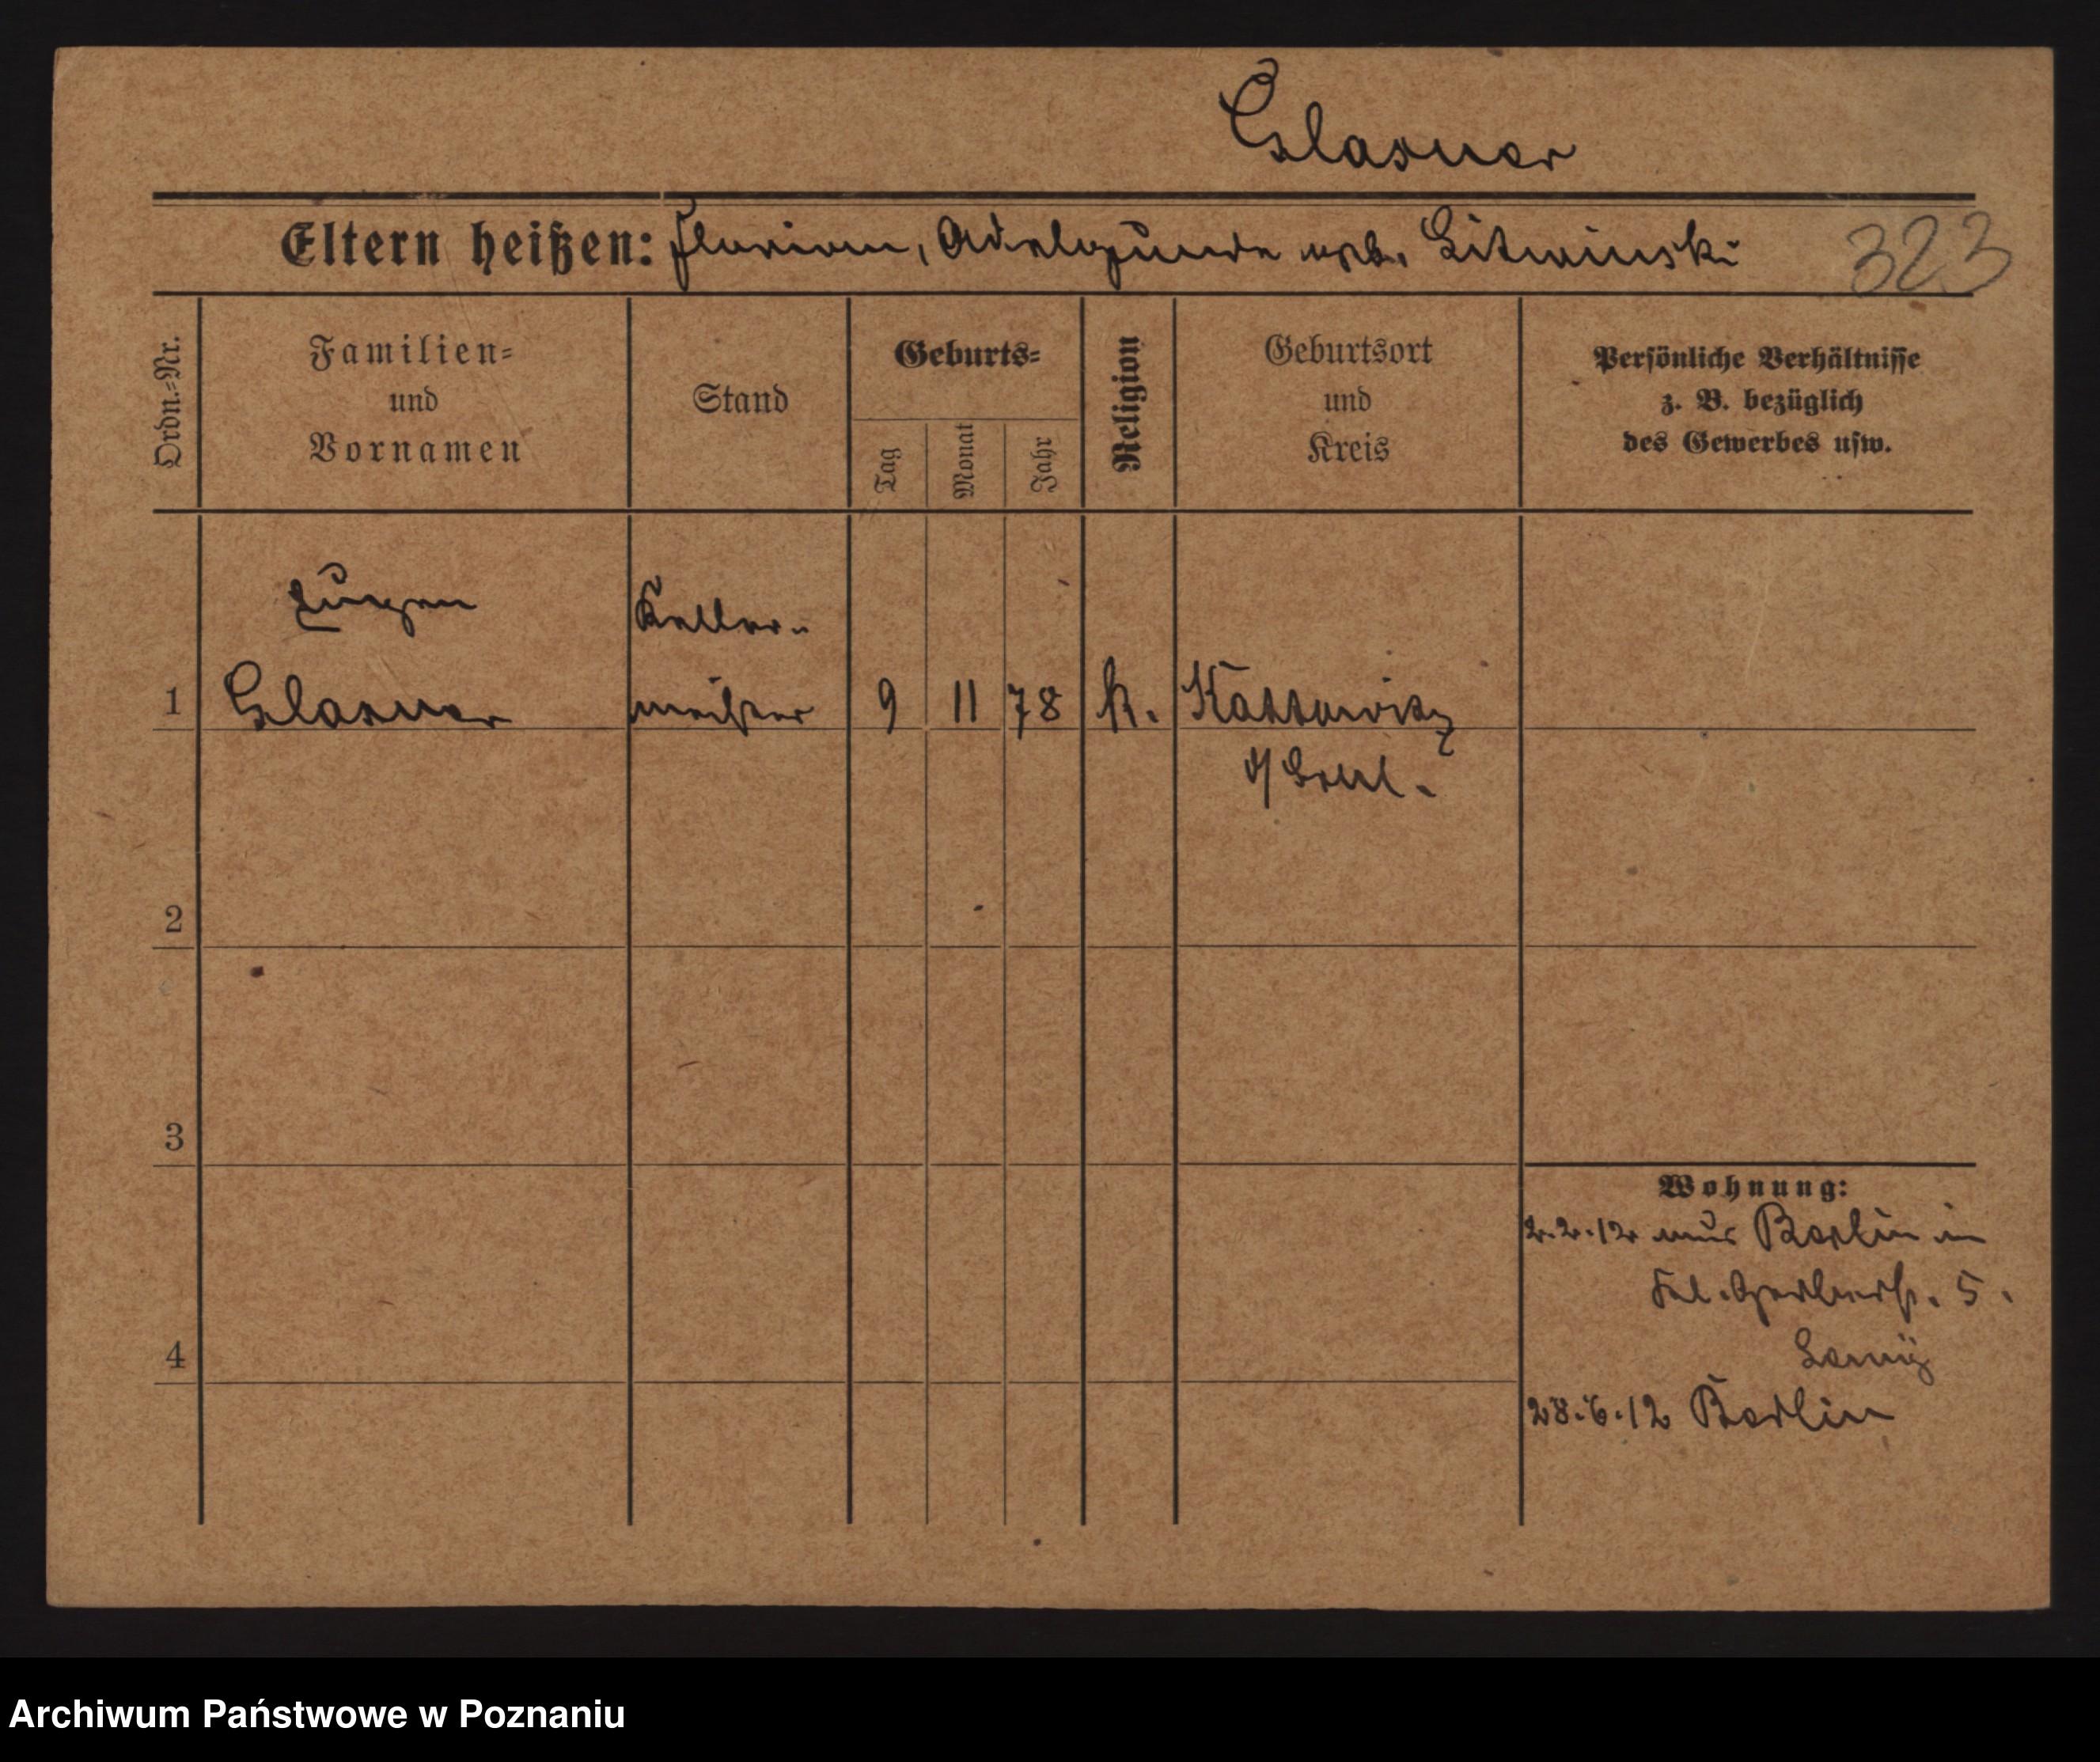 Glasner
Eltern heißen: Florian, Adelgunde geb. Litwinski 323
Ordn.-Nr. Familien- und Vornamen Stand Geburts- Tag Monat Jahr Religion Geburtsort und Kreis Persönliche Verhältnisse z. B. bezüglich des Gewerbes usw.
Eugen Keller-
1 Glasner meister 9 11 78 k. Kattowitz
2
3
Wohnung:
2.2.12 aus Berlin in
Kl. Gerberstr. 5.
4
28.6.12 Berlin
Archiwum Państwowe w Poznaniu